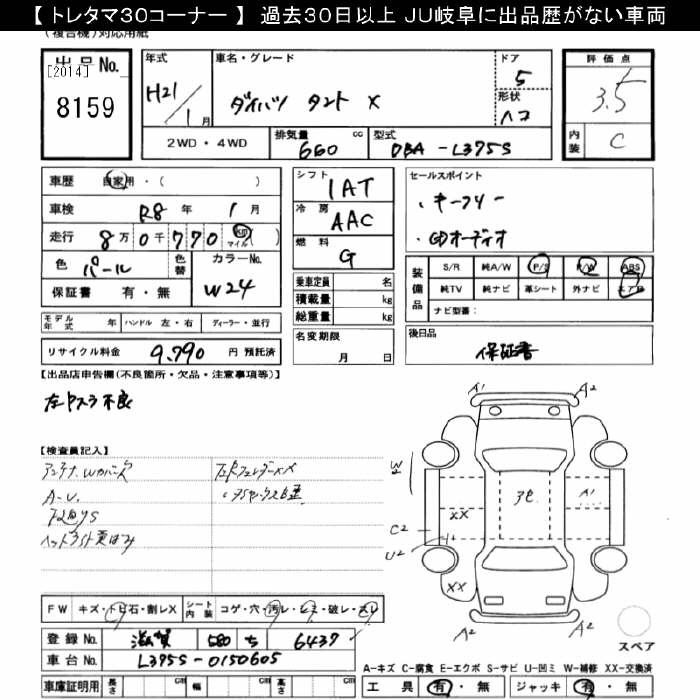 【トレタマ30コーナー】 過去30日以上 JU岐阜に出品歴がない車両
(複合機)対応用紙
出品No. [2014] 8159
年式 H21/1月
車名・グレード ダイハツ タント X
ドア 5
形状 ハコ
評価点 3.5
内装 C
2WD・4WD
排気量 660 cc
型式 DBA-L375S
車歴 自家用・( )
車検 R8年 1月
走行 8万0千770 km マイル( )
色 パール
色替
カラーNo. W24
保証書 有・無
シフト IAT
冷房 AAC
燃料 G
乗車定員 名
積載量 kg
総重量 kg
セールスポイント
・キーフリー
・CDオーディオ
装備品 S/R 純A/W P/S P/W ABS
純TV 純ナビ 革シート 外ナビ エアB
ナビ型番:
モデル年式 年 ハンドル 左・右 ディーラー・並行
名変期限 月 日
後日品 保証書
リサイクル料金 9,790 円 預託済
【出品店申告欄(不良箇所・欠品・注意事項等)】
左Pスラ不良
【検査員記入】
A-U.
ヘッドライト黄ばみ
A1 A2
W2
3E
A1
XX
C2
U2
XX
A2 A2
スペア
FW キズ・トビ石・割レX シート内装 コゲ・穴・汚レ・シミ・破レ・スレ
登録No. 滋賀 580 ち 6437
車台No. L375S-0150605
A-キズ C-腐食 E-エクボ S-サビ U-凹ミ W-補修 XX-交換済
車庫証明用 長さ cm 幅 cm 高さ cm
工具 有・無 ジャッキ 有・無